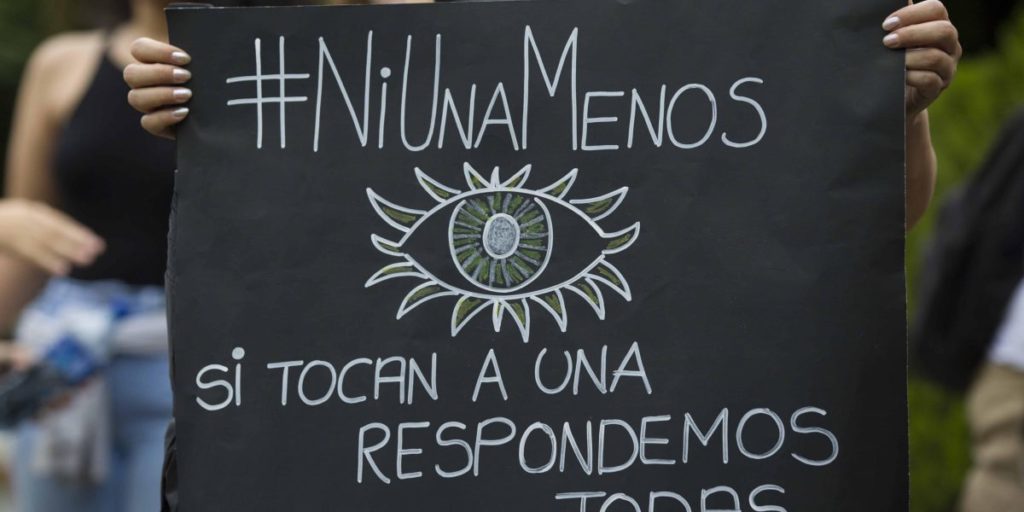 #NiUnaMenos
Si TOCAN A UNA
RESPONDEMOS
TODAS